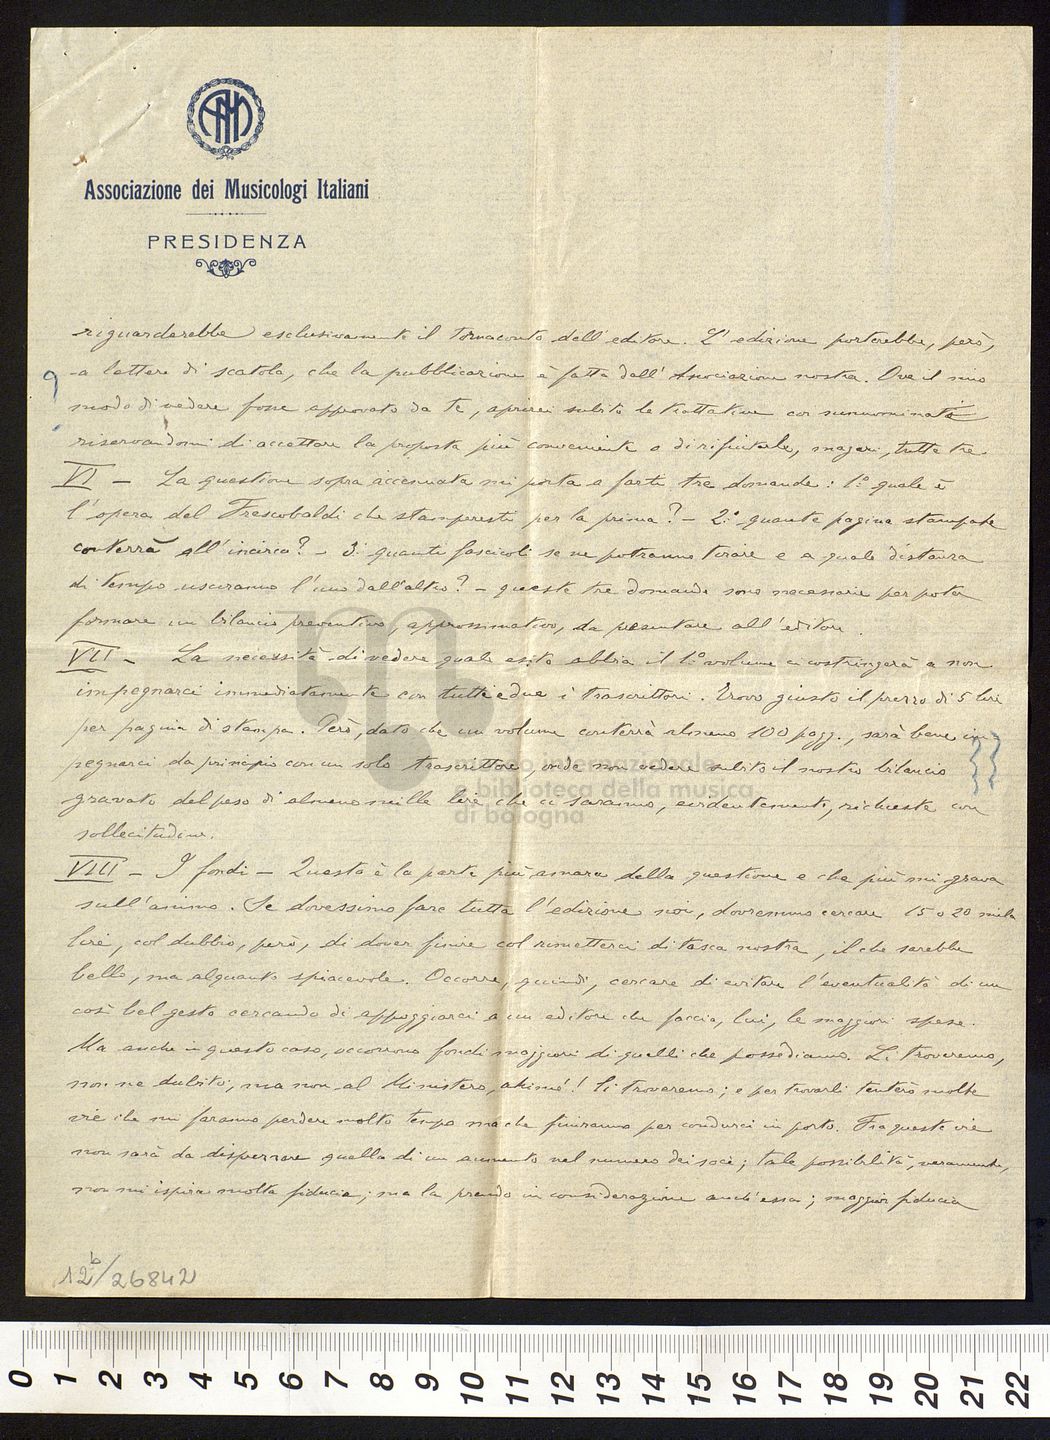 Associazione dei Musicologi Italiani
PRESIDENZA
riguarderebbe esclusivamente il tornaconto dell'editore. L'edizione porterebbe, però,
a lettere di scatola, che la pubblicazione è fatta dall'Associazione nostra. Ove il mio
modo di vedere fosse approvato da te, aprirei subito le trattative coi sunnominati
riservandomi di accettare la proposta più conveniente o di rifiutarle, magari, tutte tre.
VI — La questione sopra accennata mi porta a farti tre domande: 1.° quale è
l'opera del Frescobaldi che stamperesti per la prima? — 2.° quante pagine stampate
conterrà all'incirca? — 3.° quanti fascicoli se ne potranno tirare e a quale distanza
di tempo usciranno l'uno dall'altro? — queste tre domande sono necessarie per poter
formare un bilancio preventivo, approssimativo, da presentare all'editore.
VII — La necessità di vedere quale esito abbia il 1.° volume ci costringerà a non
impegnarci immediatamente con tutti e due i trascrittori. Trovo giusto il prezzo di 5 lire
per pagina di stampa. Però, dato che un volume conterrà almeno 100 pagg., sarà bene im
pegnarci da principio con un solo trascrittore, onde non vedere subito il nostro bilancio
gravato del peso di almeno mille lire che ci saranno, evidentemente, richieste con
sollecitudine.
VIII — I fondi — Questa è la parte più amara della questione e che più mi grava
sull'animo. Se dovessimo fare tutta l'edizione noi, dovremmo cercare 15 o 20 mila
lire, col dubbio, però, di dover finire col rimetterci di tasca nostra, il che sarebbe
bello, ma alquanto spiacevole. Occorre, quindi, cercare di evitare l'eventualità di un
così bel gesto cercando di appoggiarci a un editore che faccia, lui, le maggiori spese.
Ma anche in questo caso, occorrono fondi maggiori di quelli che possediamo. Li troveremo,
non ne dubito, ma non al Ministero, ahimè! Li troveremo; e per trovarli tenterò molte
vie che mi faranno perdere molto tempo ma che finiranno per condurci in porto. Fra queste vie
non sarà da disprezzare quella di un aumento nel numero dei soci; tale possibilità, veramente,
non mi ispira molta fiducia; ma la prendo in considerazione anch'essa; maggior fiducia
12b/26842
museo internazionale
e biblioteca della musica
di bologna
0 1 2 3 4 5 6 7 8 9 10 11 12 13 14 15 16 17 18 19 20 21 22